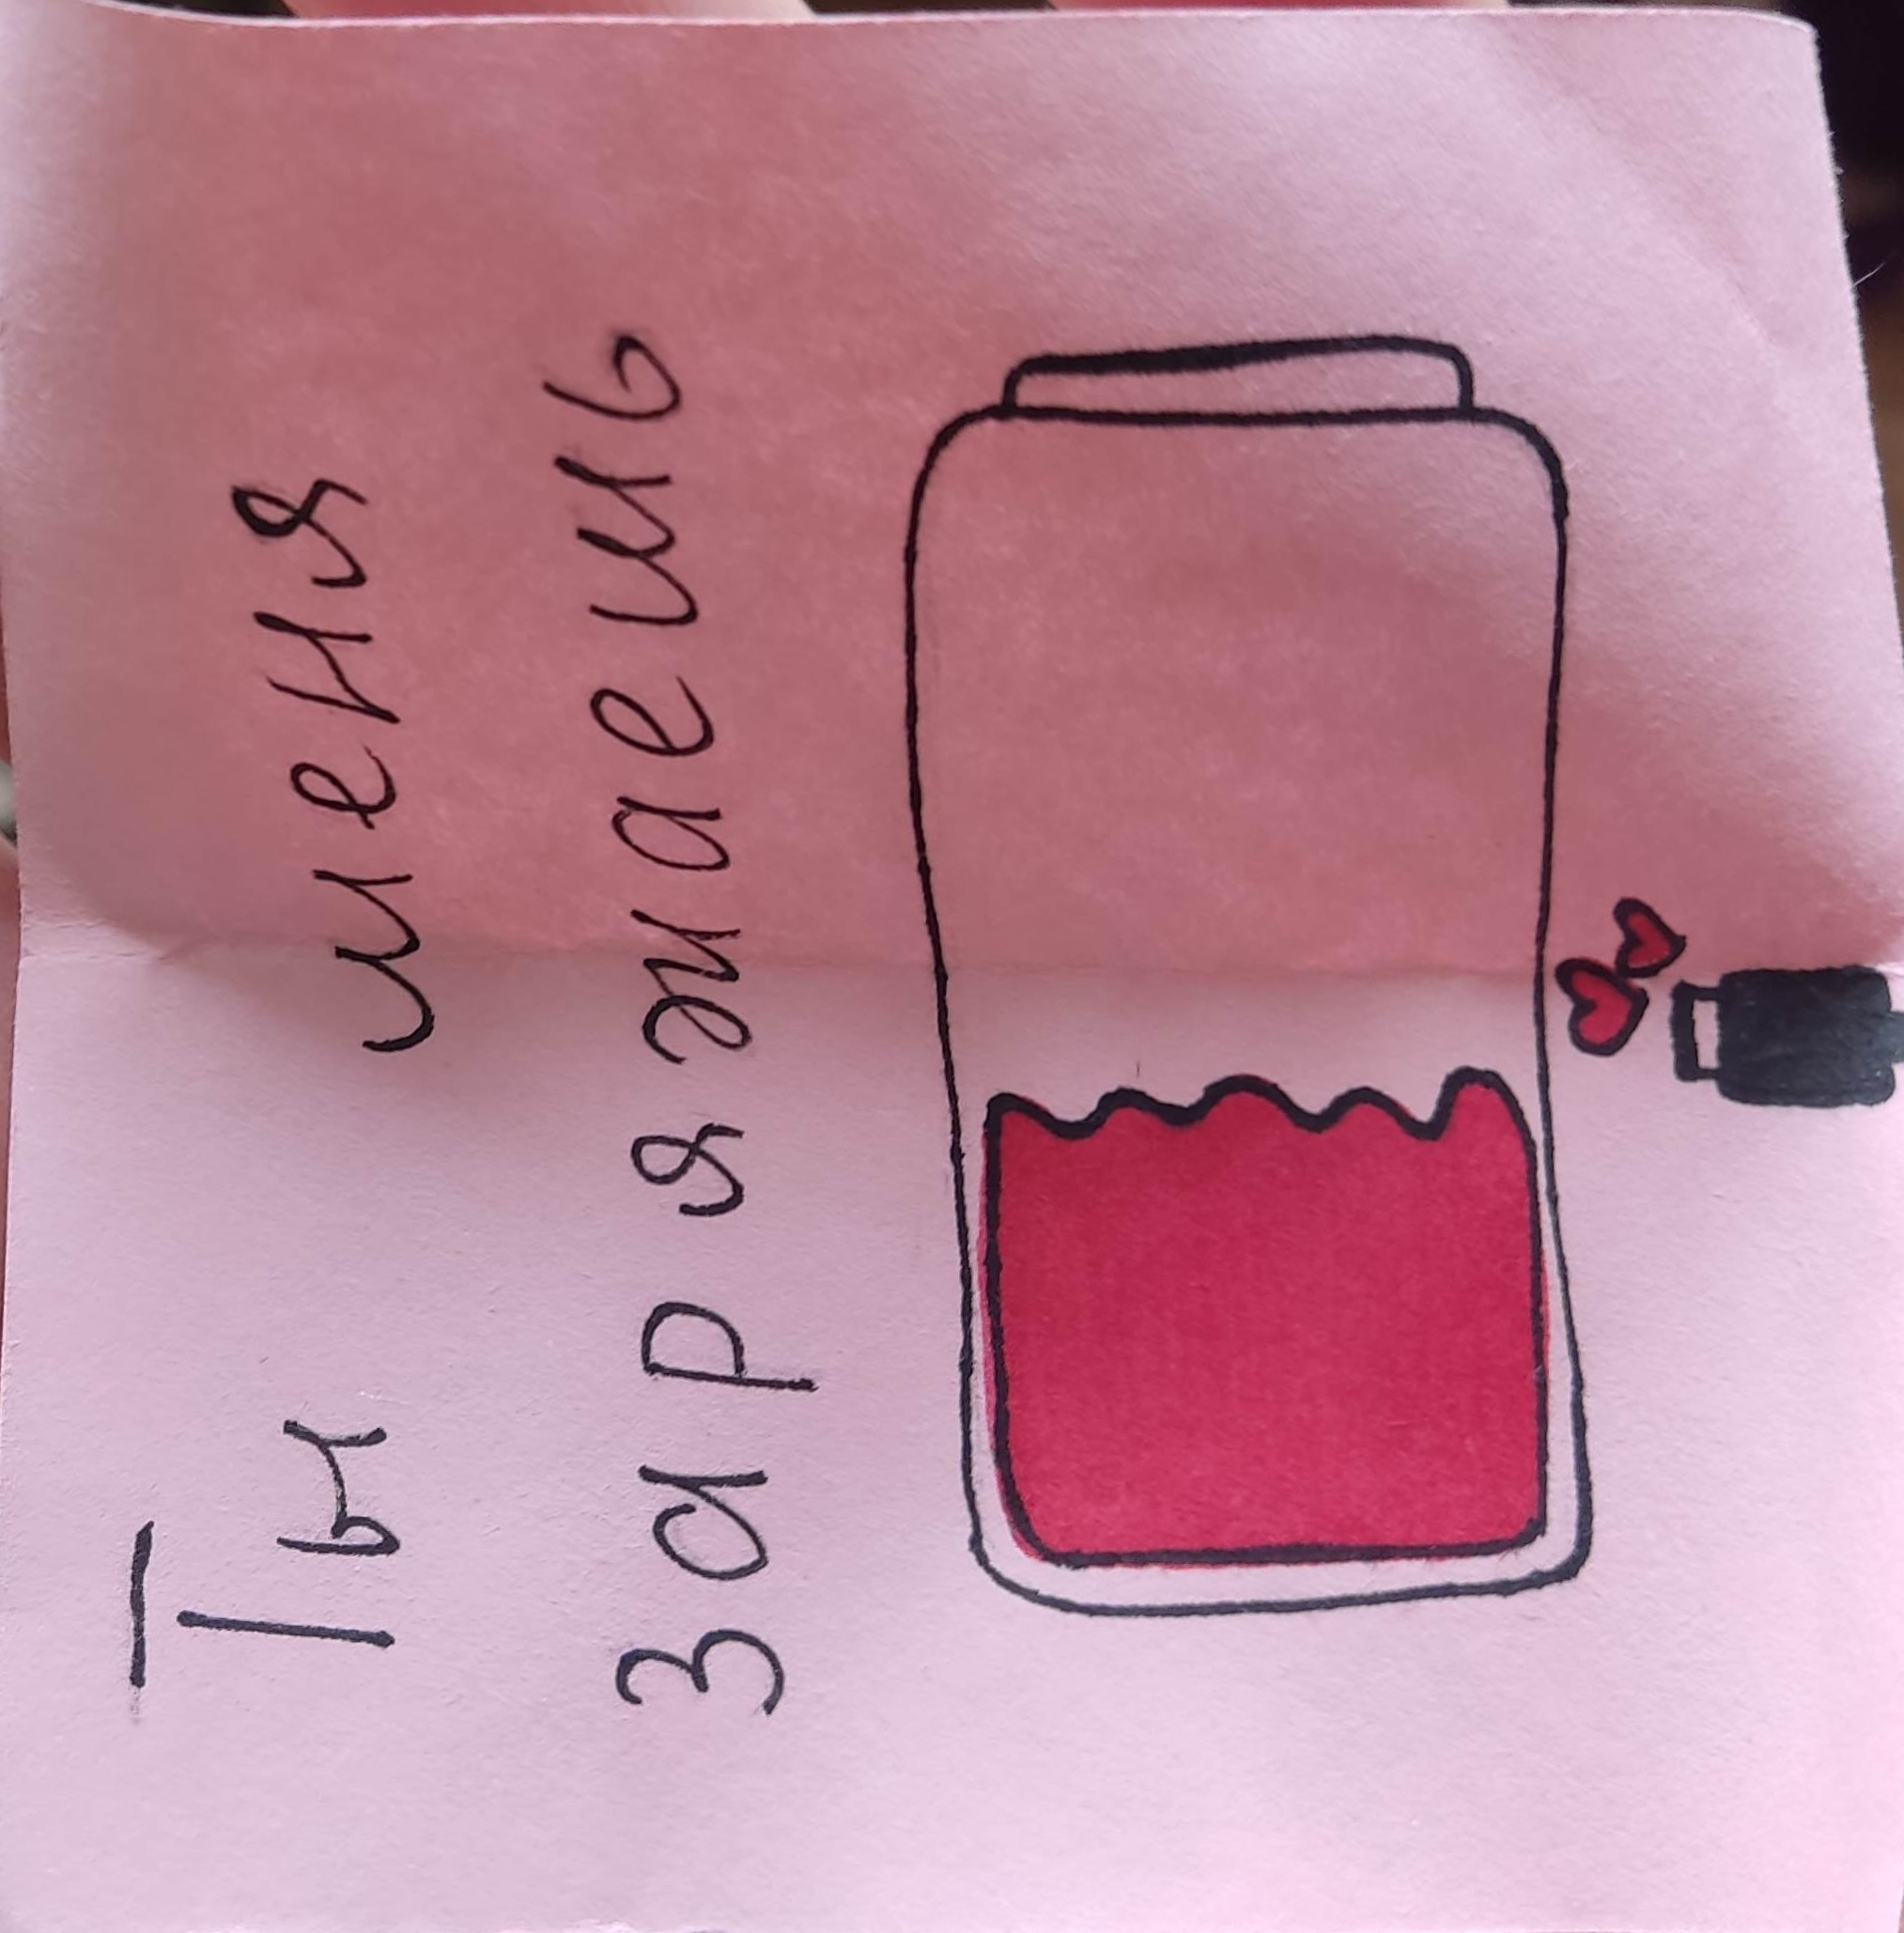 Ты меня
заряжаешь